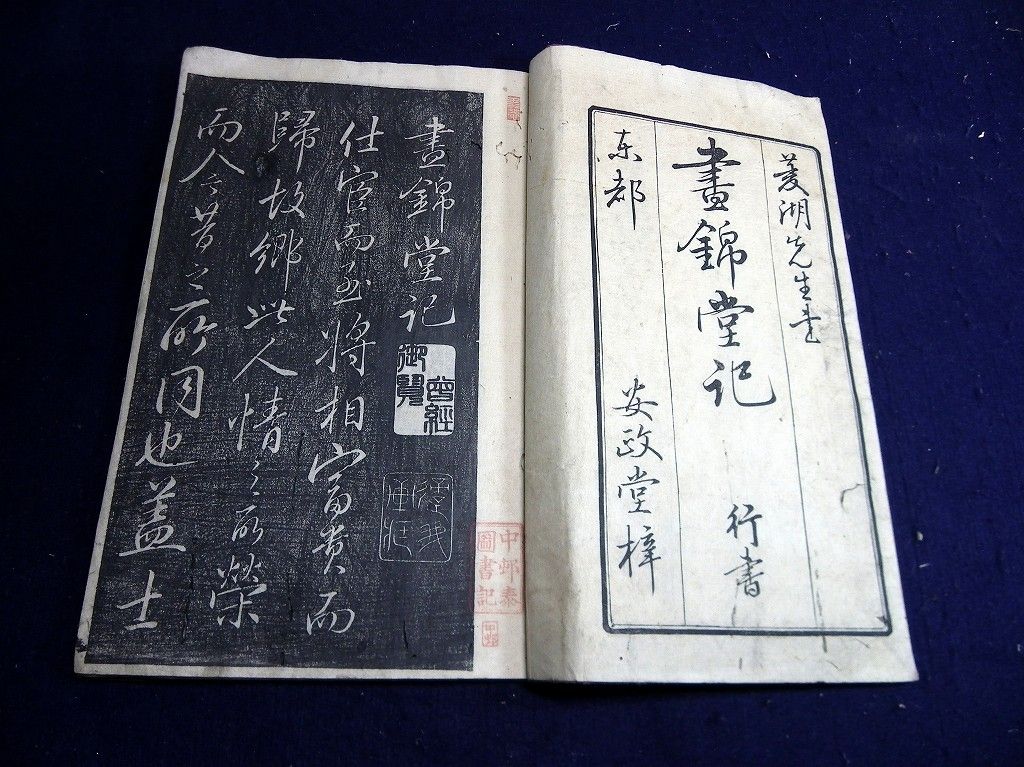 菱湖先生書
晝錦堂記 行書
東都 安政堂梓
晝錦堂記
曾經御覽
仕宦而至將相富貴而
歸故鄉此人情之所榮
而今昔之所同也蓋士
中邨泰圖書記